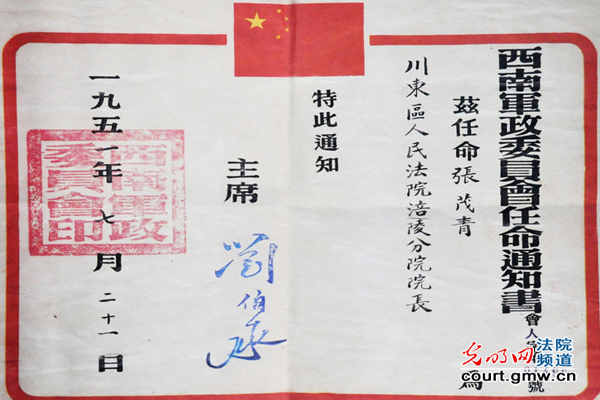 西南軍政委員會任命通知書
會人字 號
茲任命張茂青 為
川東區人民法院涪陵分院院長
特此通知
主席
劉伯承
一九五一年七月二十一日
西南軍政委員會印
光明网 法院频道
court.gmw.cn